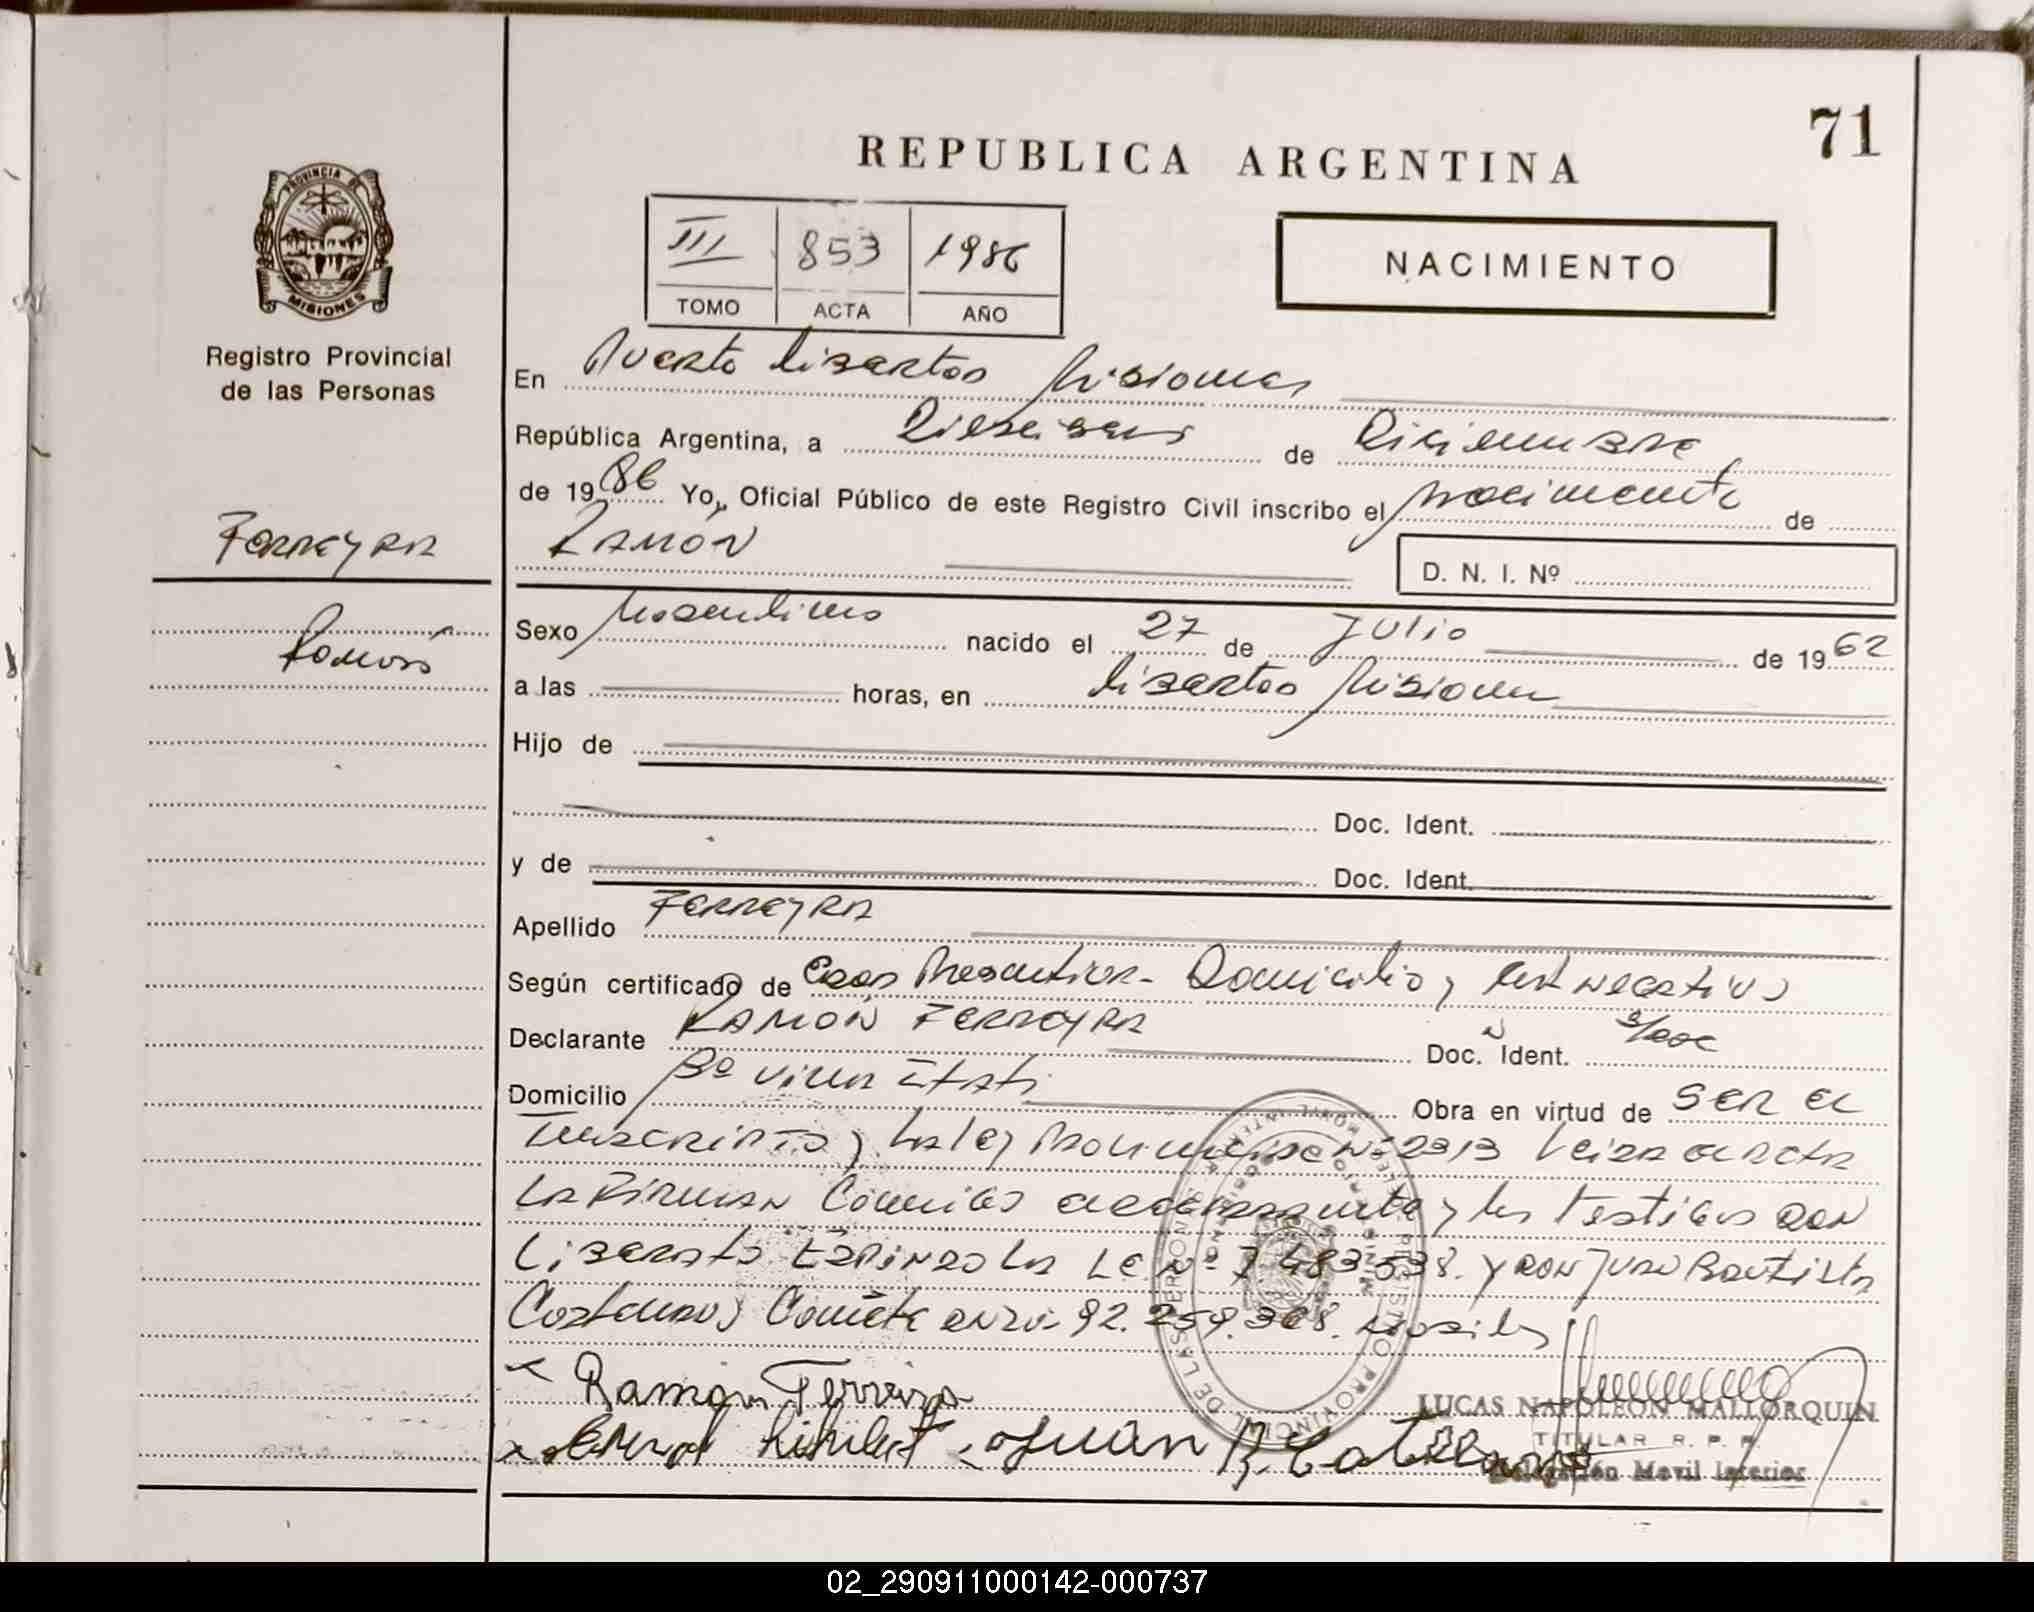 71
REPUBLICA ARGENTINA
PROVINCIA DE
MISIONES
Registro Provincial
de las Personas
III 853 1986
TOMO ACTA AÑO
NACIMIENTO
En Puerto Libertad Misiones
República Argentina, a Dieseiseis de Diciembre
de 1986 Yo, Oficial Público de este Registro Civil inscribo el nacimiento de
RAMÓN
D. N. I. Nº
Ferreyra
Ramón
Sexo Masculino nacido el 27 de Julio de 1962
a las horas, en Libertad Misiones
Hijo de
Doc. Ident.
y de Doc. Ident.
Apellido Ferreyra
Según certificado de Domicilio y Test Negativo
Declarante RAMÓN FERREYRA Doc. Ident. s/doc
Domicilio Bº Villa Itatí Obra en virtud de ser el
Inscripto y la Ley Provincial Nº 2313 Leida el acta
la Firman Conmigo el declarante y los Testigos don
Liberato Espindola LE Nº 7.483.538. y don Juan Bautista
92.259.368.
Ramón Ferreira
Juan B.
REGISTRO PROVINCIAL DE LAS PERSONAS
LUCAS NAPOLEON MALLORQUIN
TITULAR R. P. P.
Delegación Movil Interior
02_290911000142-000737